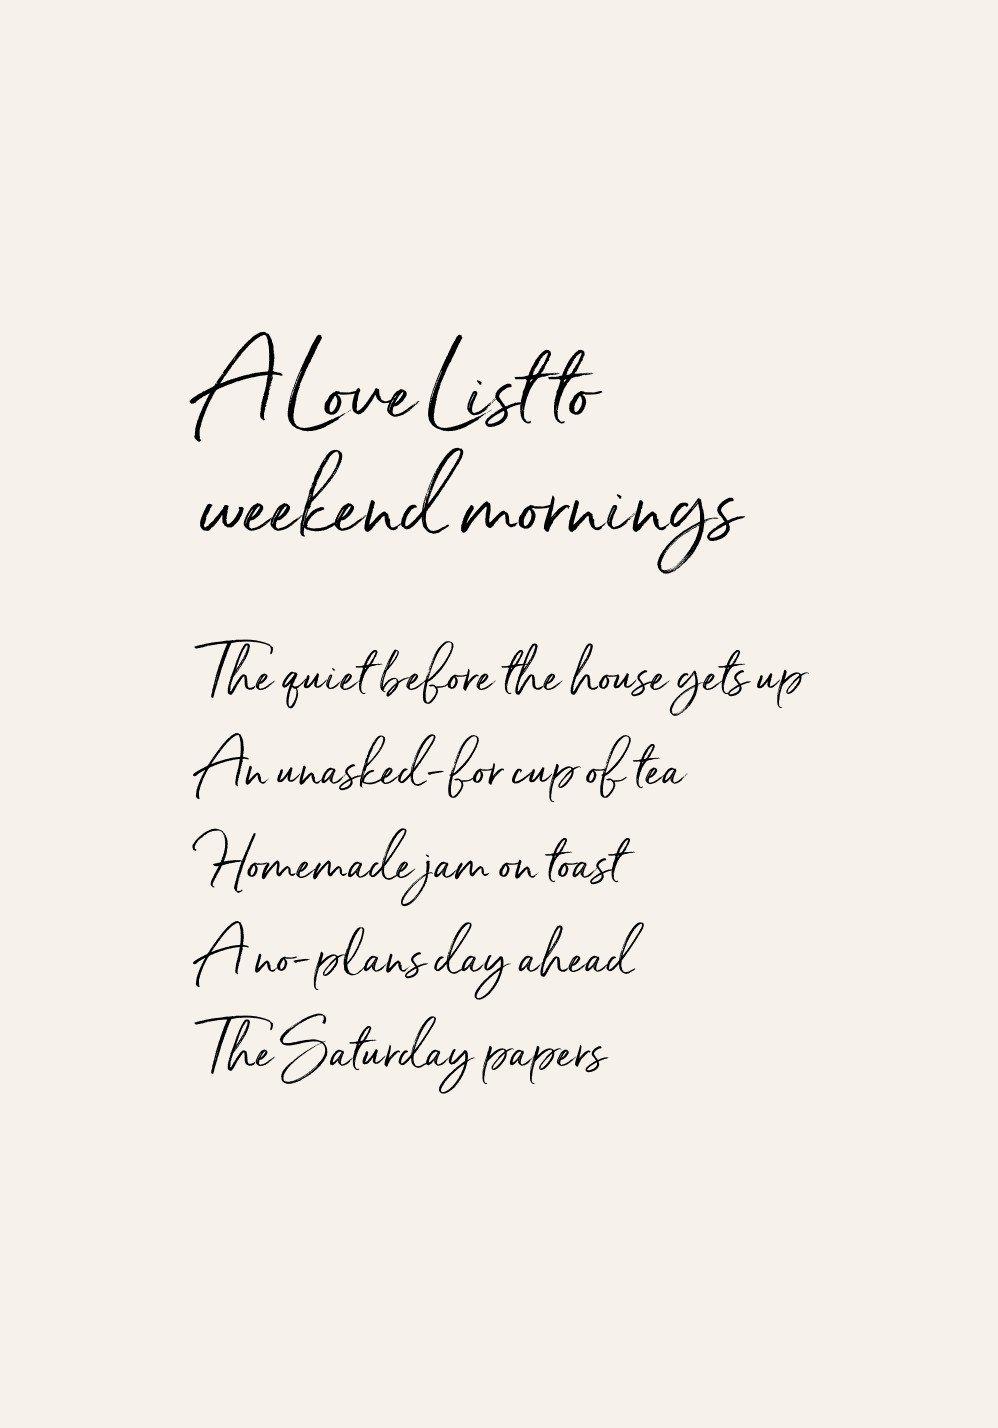 A Love List to
weekend mornings
The quiet before the house gets up
An unasked-for cup of tea
Homemade jam on toast
A no-plans day ahead
The Saturday papers